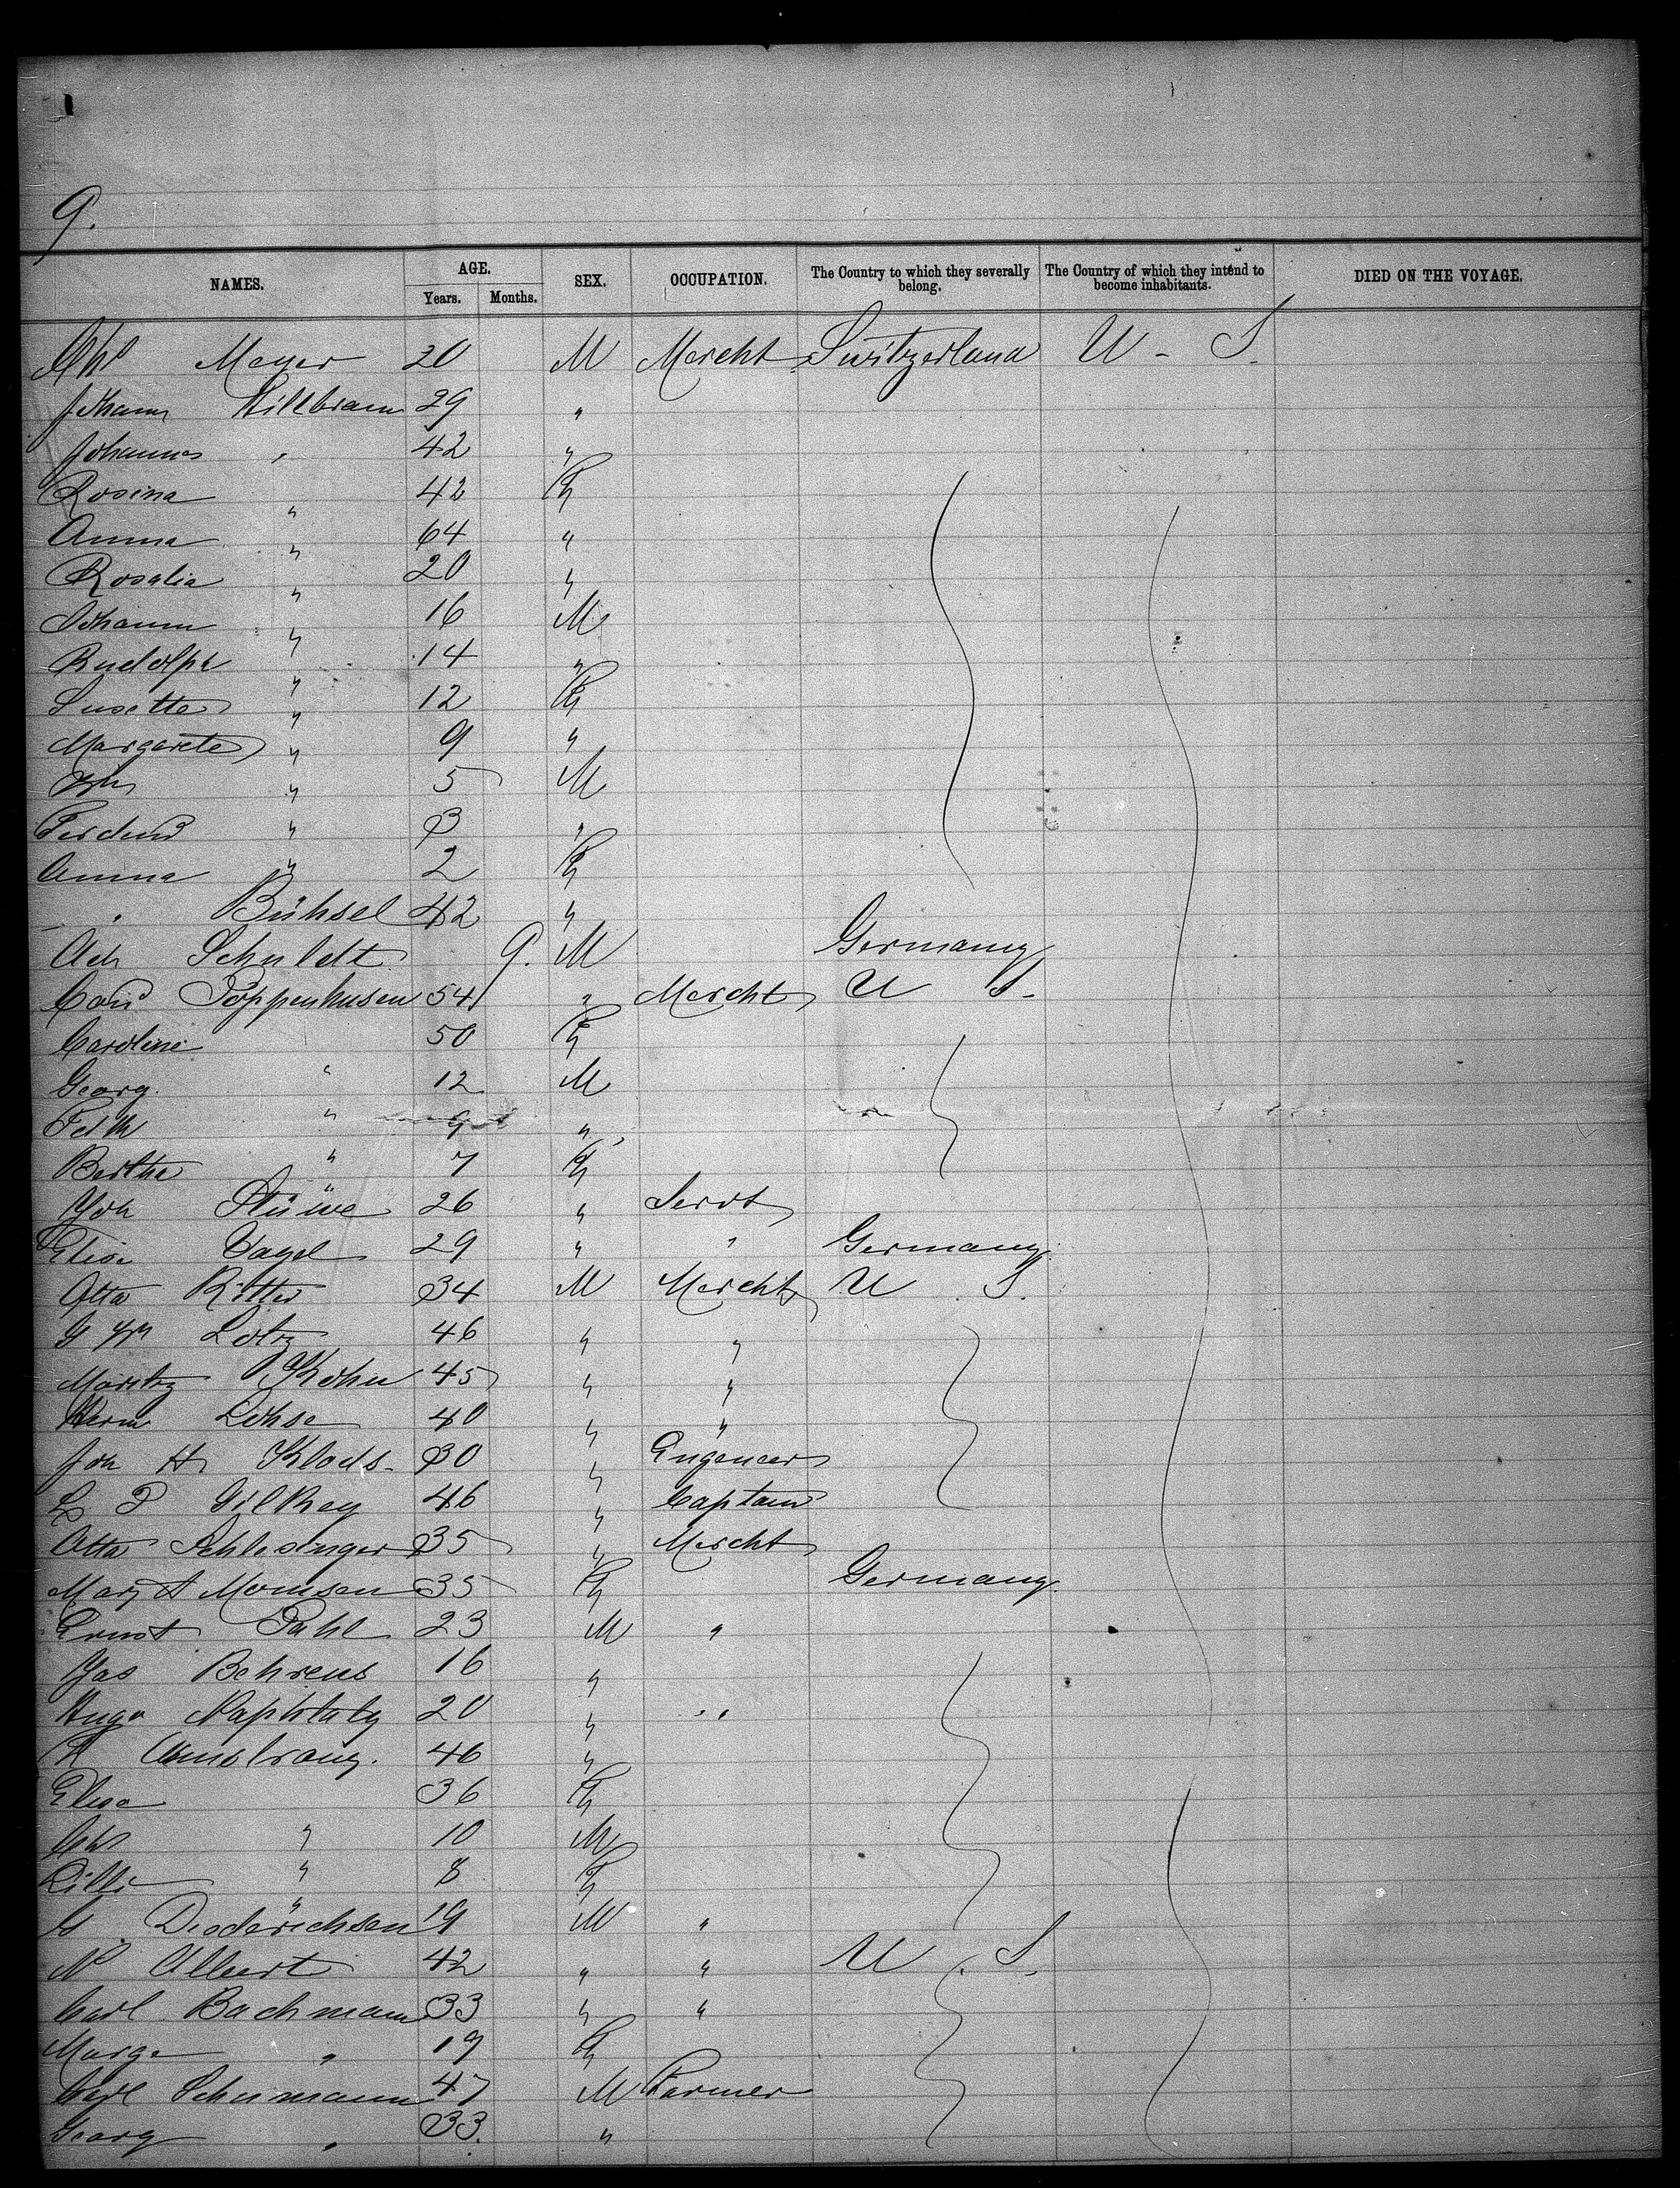 9.
NAMES. AGE. SEX. OCCUPATION. The Country to which they severally belong. The Country of which they intend to become inhabitants. DIED ON THE VOYAGE.
Years. Months.
Meyer 20 M Mercht Switzerland U - S.
Johann Hillbram 29 "
Johannes " 42 "
Rosina " 42 F
Anna " 64 "
Rosalia " 20 "
Johann " 16 M
Rudolph " 14 "
Susette " 12 F
Margarete " 9 "
" 5 M
Ferdnd " 3 "
Anna " 2 F
" Bühsel 42 "
Ad Schuldt 9. M Germany
Cond Poppenhusen 54 " Mercht U S.
Caroline 50 F
Georg. " 12 M
" 9 "
Bertha " 7 F
Joh Stüwe 26 " Servt
Elise Vagel 29 " " Germany
Otto Ritter 34 M Mercht U S.
G Wm Lotz 46 " "
Moritz Kohn 45 " "
Herm Lohse 40 " "
Joh H Klods 30 " Engeneer
L P Gilkey 46 " Captain
Otto Schlesinger 35 " Mercht
Mar A Momsen 35 F Germany.
Ernst Pahl 23 M "
Jas Behrens 16 "
Hugo Naphtaly 20 " "
R Armstrong. 46 "
Elisa 36 F
Chs " 10 M
Lilli " 8 F
G. Diederichsen 19 M "
N Albert 42 " " U . S.
Carl Bachmann 33 " "
Marga " 19 F
Carl Schumann 47 M Farmer
Georg " 33. "